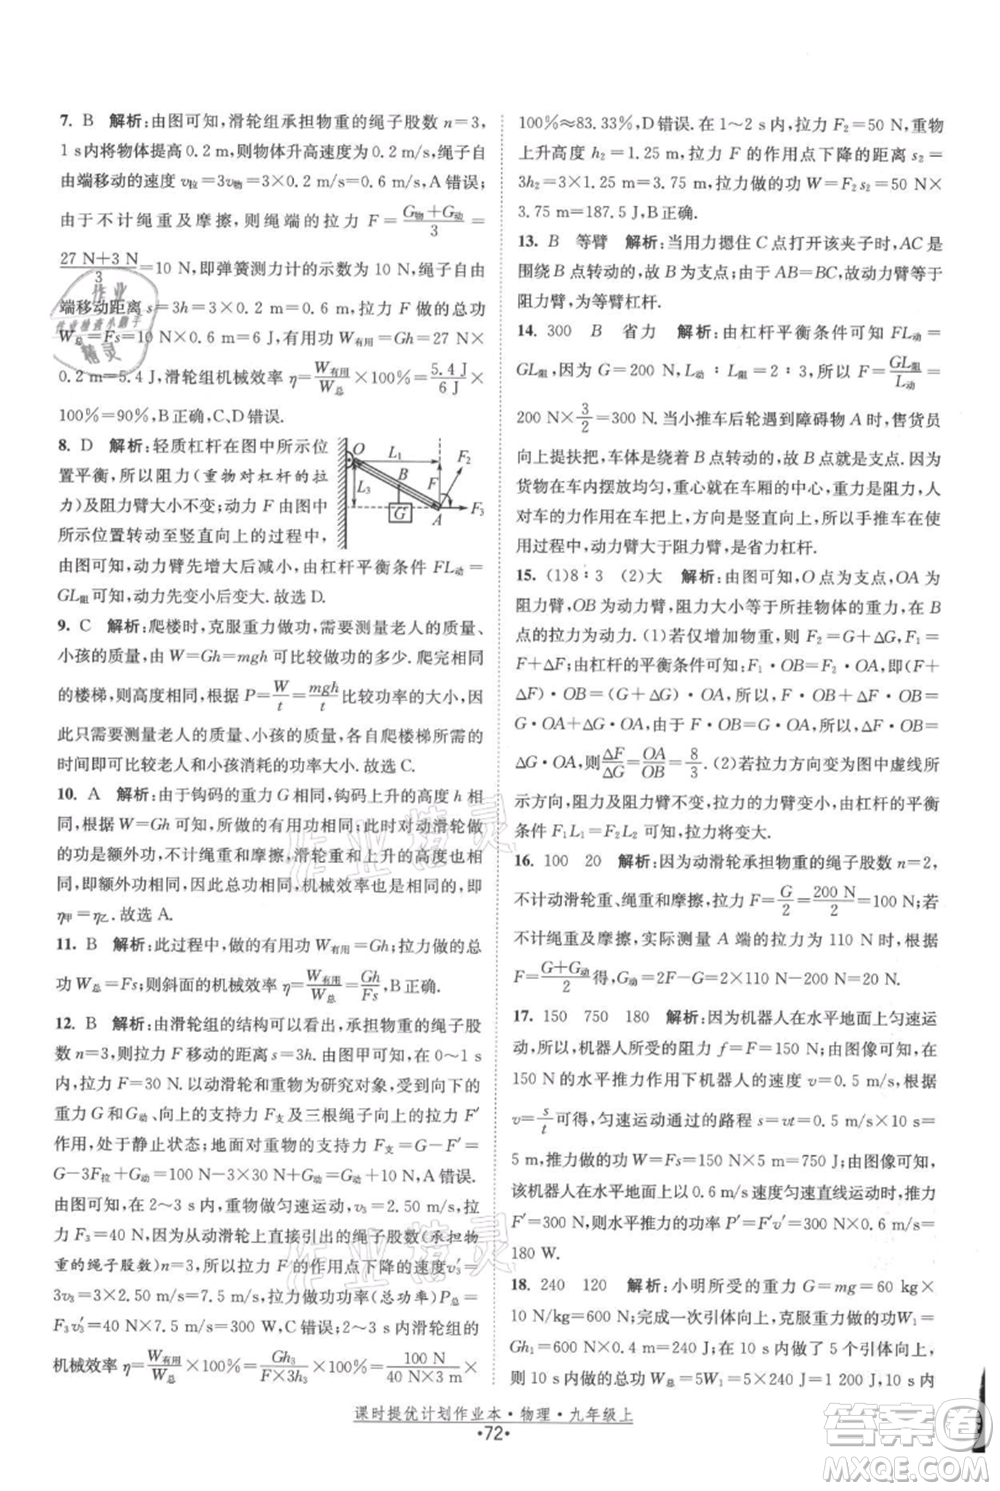 7. B 解析:由图可知,滑轮组承担物重的绳子股数 n=3,
1 s内将物体提高 0.2 m,则物体升高 0.2 m/s,绳子自
由端移动的速度 v拉=3v物=3×0.2 m/s=0.6 m/s,A错误;
由于不计绳重及摩擦,则绳端的拉力 F=(G物+G动)/3=
(27 N+3 N)/3=10 N,即弹簧测力计的示数为 10 N;绳子自由
端移动距离 s=3h=3×0.2 m=0.6 m,拉力 F 做的总功
W总=Fs=10 N×0.6 m=6 J,W有用=Gh=27 N×
0.2 m=5.4 J,滑轮组机械效率 η=W有用/W总×100%=5.4 J/6 J×
100%=90%,B正确,C、D错误.
8. D 解析:轻质杠杆在图中所示位
置平衡,所以阻力(重物对杠杆的拉
力)及阻力臂大小不变;动力 F 由图中
所示位置转动至竖直向上的过程中,
由图可知,动力臂先变大后减小,所以,由杠杆平衡条件 FL动=
GL阻可知,动力先变小后变大.故选 D.
O L₁ F₂ B F L₃ G A F₃
9. C 解析:爬楼时,克服重力做功,需要测量老人的质量、
小孩的质量,由 W=Gh=mgh 可比较做功的多少.爬完同样
的楼梯,h 相同,根据 P=W/t=mgh/t 比较功率的大小,质量不
同,需要测量老人的质量、小孩的质量、各自爬楼梯的时间,
就可以比较老人和小孩消耗的功率大小.故选 C.
10. A 解析:由于钩码的重力 G 相同,钩码上升的高度 h 相
同,由 W=Gh 可知,所做的有用功相同;对动滑轮做的功为额
外功,不计绳重和摩擦,滑轮重和上升的高度也相同,所做
的功为额外功也相同,因此总功相同,机械效率也相同,即
η甲=η乙.故选 A.
11. B 解析:此过程中,做的有用功 W有用=Gh;拉力做的总
功 W总=Fs;则斜面的机械效率 η=W有用/W总=Gh/Fs,B正确.
12. B 解析:由滑轮组的结构可以看出,承担物重的绳子股
数 n=3,则拉力 F 移动的距离 s=3h.由图可知,在 0~1 s
内,拉力 F=30 N.取动滑轮和重物为研究对象,受到向下的
重力 G 和 G动、向上的支持力 F支及三根绳子向上的拉力 F′
作用,处于静止状态;地面对重物的支持力 F支=G-F′=
G-3F拉+G动=100 N-3×30 N+20 N=30 N,A错误.
由图可知,在 2~3 s 内,重物做匀速运动,v₃=2.50 m/s,拉
力 F₃=40 N,因为动滑轮上绳子股数(承担物
重的绳子股数)n=3,拉力 F 的作用点下降的速度 v₃′=
3v₃=3×2.50 m/s=7.5 m/s,拉力做功的功率(总功率)P总=
F₃v₃′=40 N×7.5 m/s=300 W,C错误;滑轮组的
机械效率 η=W有用/W总×100%=Gh₃/(F×3h₃)×100%=100 N/(40 N×3 m)×
100%≈83.33%,D错误.在 1~2 s 内,拉力 F₂=50 N,重物
上升高度 h₂=1.25 m,拉力 F 的作用点下降的距离 s₂=
3h₂=3×1.25 m=3.75 m,拉力做的功 W=F₂s₂=50 N×
3.75 m=187.5 J,B正确.
13. B 等臂 解析:当用力摁住 C 点打开该夹子时,AC 是
围绕 B 点转动的,则 B 为支点;由 AB=BC,故动力臂等于阻
力臂,为等臂杠杆.
14. 300 B 省力 解析:由杠杆平衡条件可知 FL动=
GL阻,因为 G=200 N,L动:L阻=2:3,所以 F=GL阻/L动=
200 N×3/2=300 N.当小推车后轮遇到障碍物 A 时,售货员
向上提扶把,车体是绕着 B 点转动的,所以支点是 B 点.因为
货物在车内摆放均匀,重心就在车厢的中心,方向竖直向下,
人对车的力作用在车把上,方向是竖直向上,所以手推车在
B 点转动,动力臂大于阻力臂,是省力杠杆.
15. (1)8:3 (2)大 解析:由图可知,O 为支点,OA 为
阻力臂,OB 为动力臂,阻力大小等于所挂物体的重力,在 B
点的拉力为动力.(1)若仅增加物重,则 F₂=G+ΔG,F₁=
F+ΔF,由杠杆的平衡条件可知:F₁·OB=F₂·OA,即(F+
ΔF)·OB=(G+ΔG)·OA,所以,F·OB+ΔF·OB=
G·OA+ΔG·OA,由于 F·OB=G·OA,所以,ΔF·OB=
ΔG·OA,则 ΔF/ΔG=OA/OB=8/3. (2)若拉力方向为图中虚线所
示,则阻力及阻力臂大小不变,动力臂变小,根据杠杆的平衡
条件 F₁L₁=F₂L₂ 可知,拉力将变大.
16. 100 20 解析:因为动滑轮承担物重的绳子股数 n=2,
不计动滑轮重、绳重及摩擦,则拉力 F=G/2=200 N/2=100 N;若
不计绳重及摩擦,实际测量 A 端的拉力为 110 N,由
F=(G+G动)/2得,G动=2F-G=2×110 N-200 N=20 N.
17. 150 750 180 解析:因为机器人在水平地面上匀速运
动,所以,机器人所受的阻力 f=F=150 N;由图像可知,在
150 N 的水平推力作用下机器人的速度 v=0.5 m/s,根据
v=s/t可得,匀速运动通过的路程 s=vt=0.5 m/s×10 s=
5 m,推力做的功 W=Fs=150 N×5 m=750 J;由图像可知,
该机器人在水平地面以 0.6 m/s 速度匀速直线运动,推力
F′=300 N,则水平推力的功率 P′=F′v′=300 N×0.6 m/s=
180 W.
18. 240 120 解析:小明所受的重力 G=mg=60 kg×
10 N/kg=600 N;完成一次引体向上,克服重力的功W₁=
Gh₁=600 N×0.4 m=240 J;因为 10 s 内做了 5 个引体向
上,则 10 s 内做的总功 W总=5W₁=5×240 J=1 200 J,
课时提优计划作业本·物理·九年级上
·72·
作业
作业检查小助手
精灵
作业精灵
作业精灵
答案圈
MXQE.COM